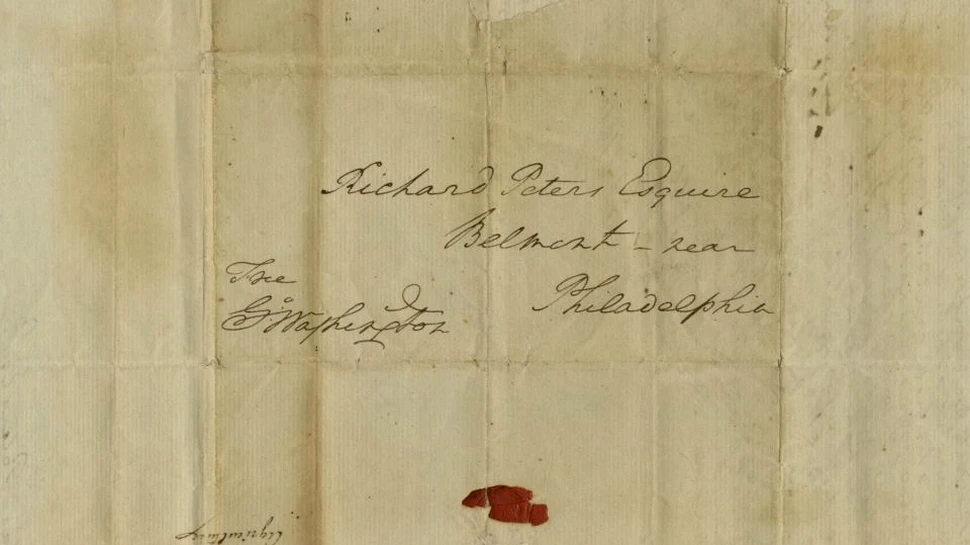 Richard Peters Esquire
Belmont - near
Philadelphia
Free
Go: Washington